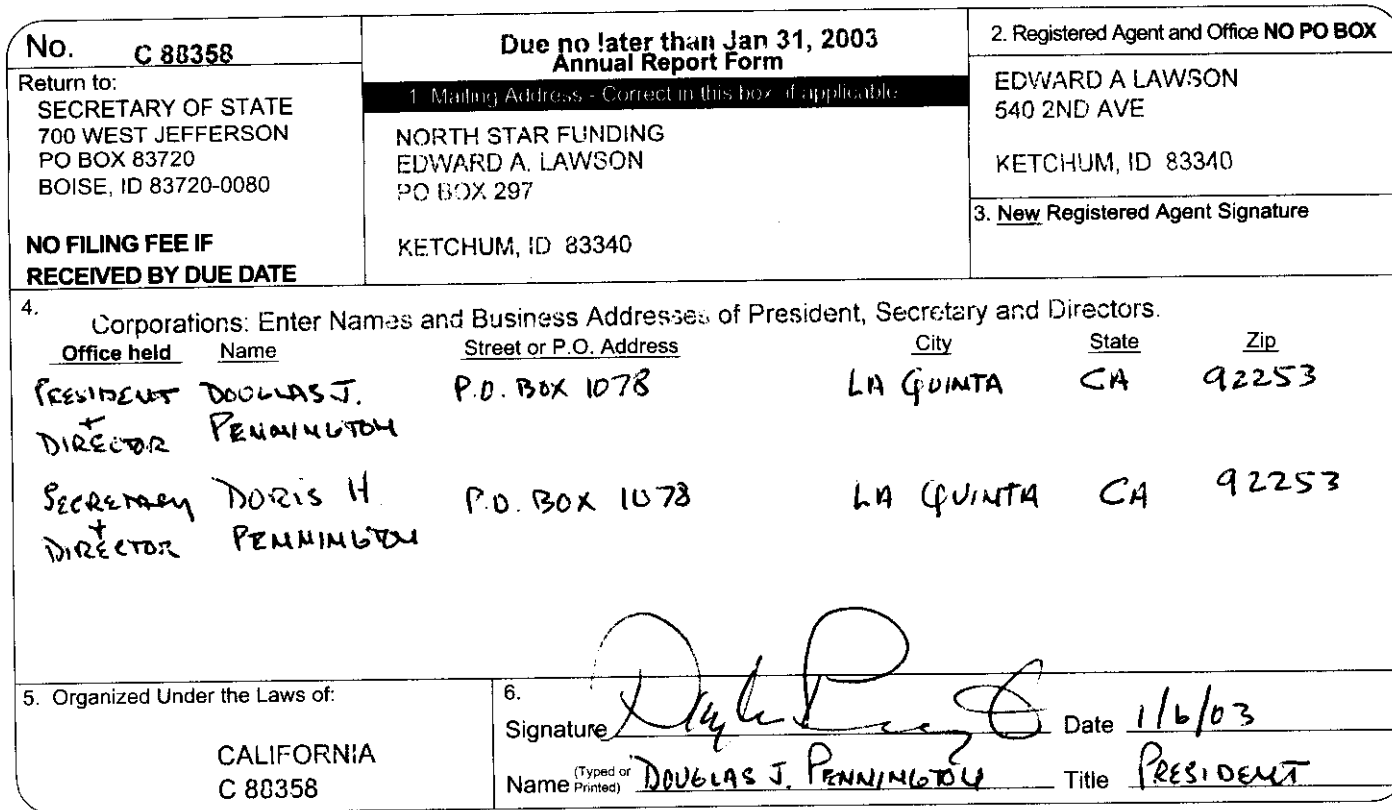 No. C 88358
Return to:
SECRETARY OF STATE
700 WEST JEFFERSON
PO BOX 83720
BOISE, ID 83720-0080
NO FILING FEE IF
RECEIVED BY DUE DATE
Due no later than Jan 31, 2003
Annual Report Form
1. Mailing Address - Correct in this box if applicable
NORTH STAR FUNDING
EDWARD A. LAWSON
PO BOX 297
KETCHUM, ID 83340
2. Registered Agent and Office NO PO BOX
EDWARD A LAWSON
540 2ND AVE
KETCHUM, ID 83340
3. New Registered Agent Signature
4. Corporations: Enter Names and Business Addresses of President, Secretary and Directors.
Office held Name Street or P.O. Address City State Zip
PRESIDENT DOUGLAS J. P.O. BOX 1078 LA QUINTA CA 92253
+
DIRECTOR PENNINGTON
SECRETARY DORIS H P.O. BOX 1078 LA QUINTA CA 92253
+
DIRECTOR PENNINGTON
5. Organized Under the Laws of:
CALIFORNIA
C 88358
6.
Signature Date 1/6/03
Name (Typed or Printed) DOUGLAS J. PENNINGTON Title PRESIDENT